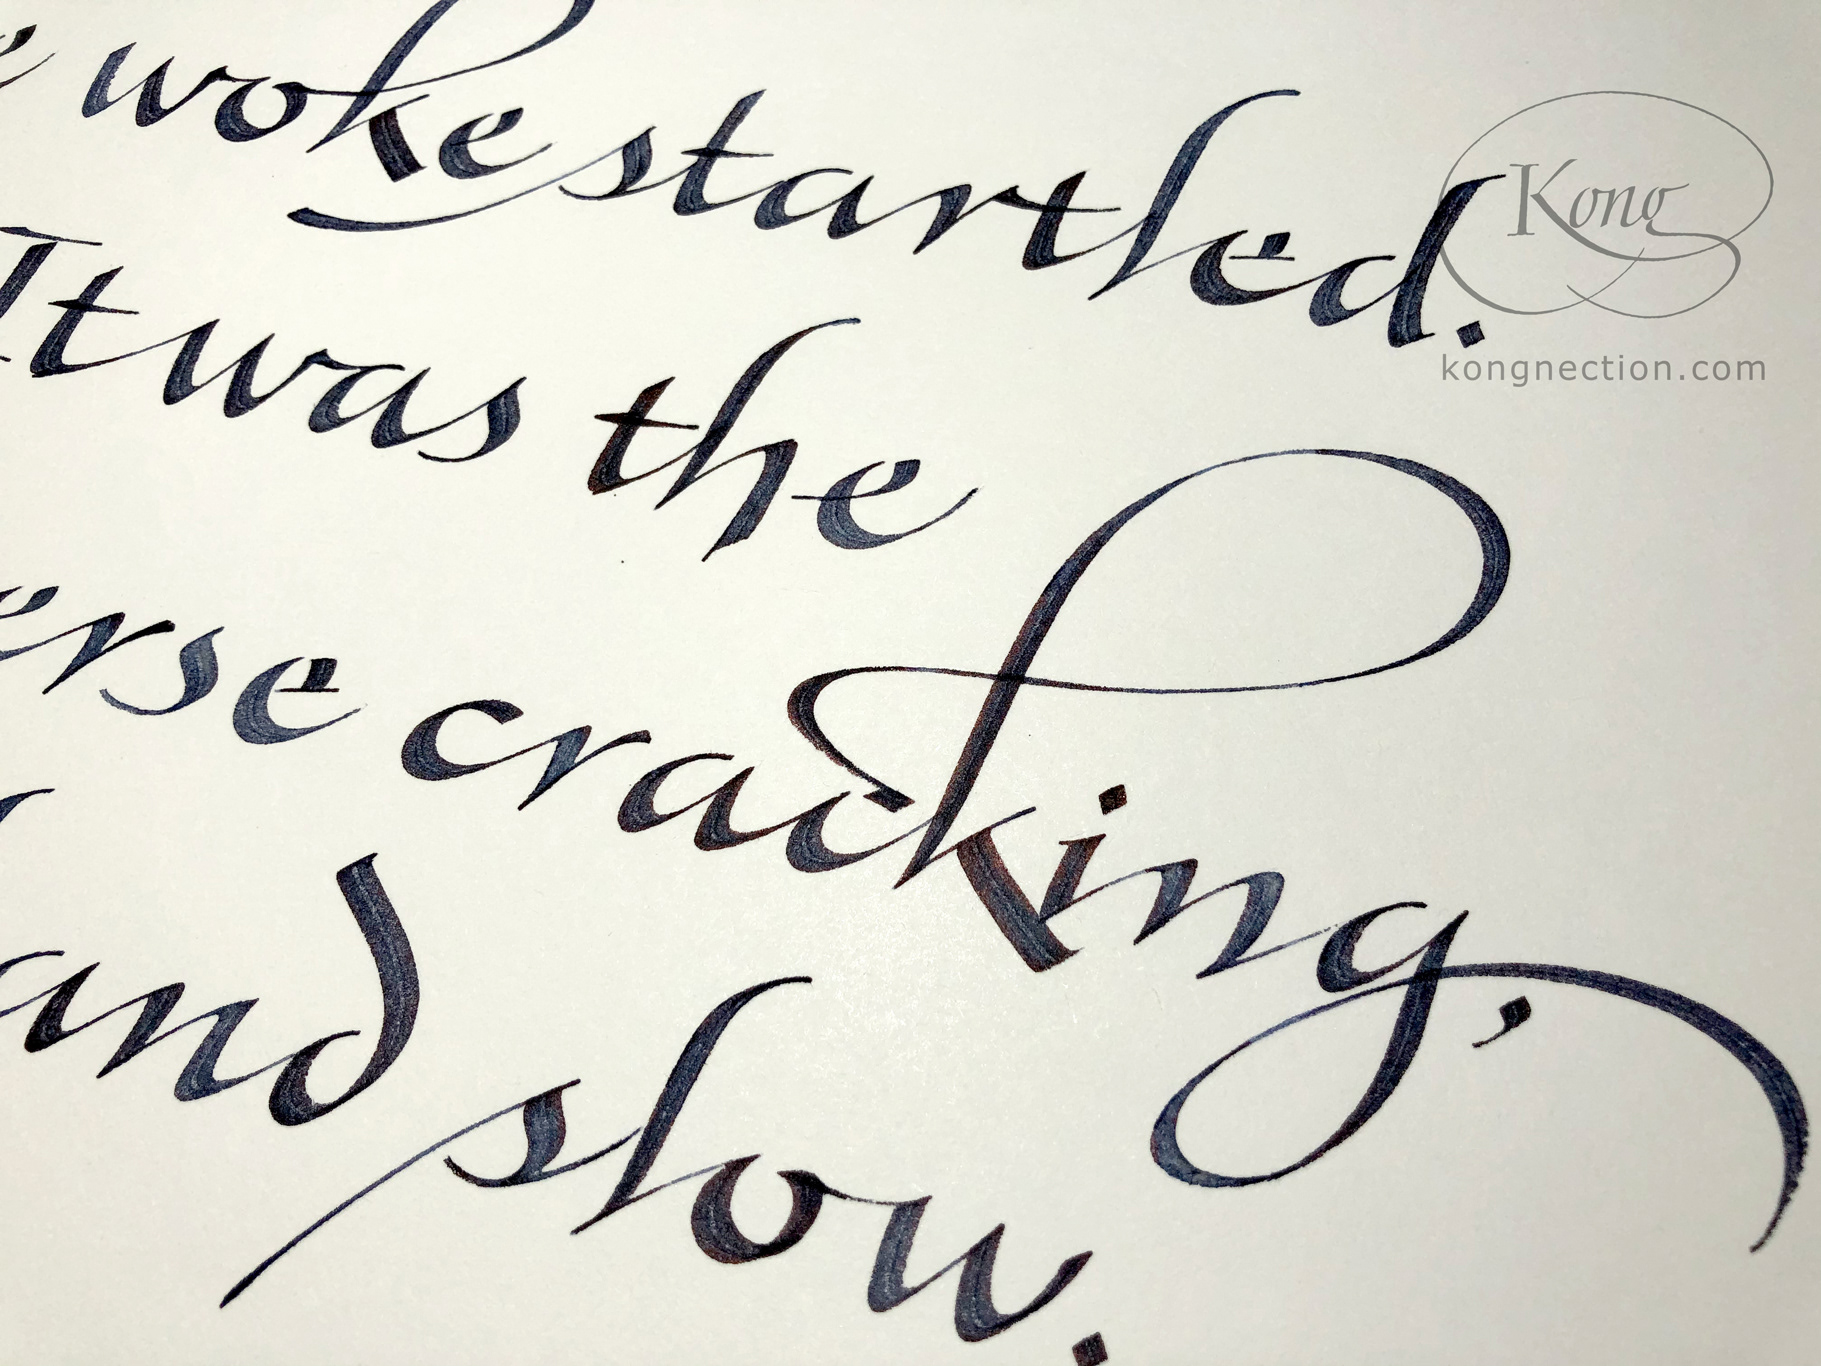 e woke startled.
It was the
erse cracking,
and slow.
Kong
kongnection.com